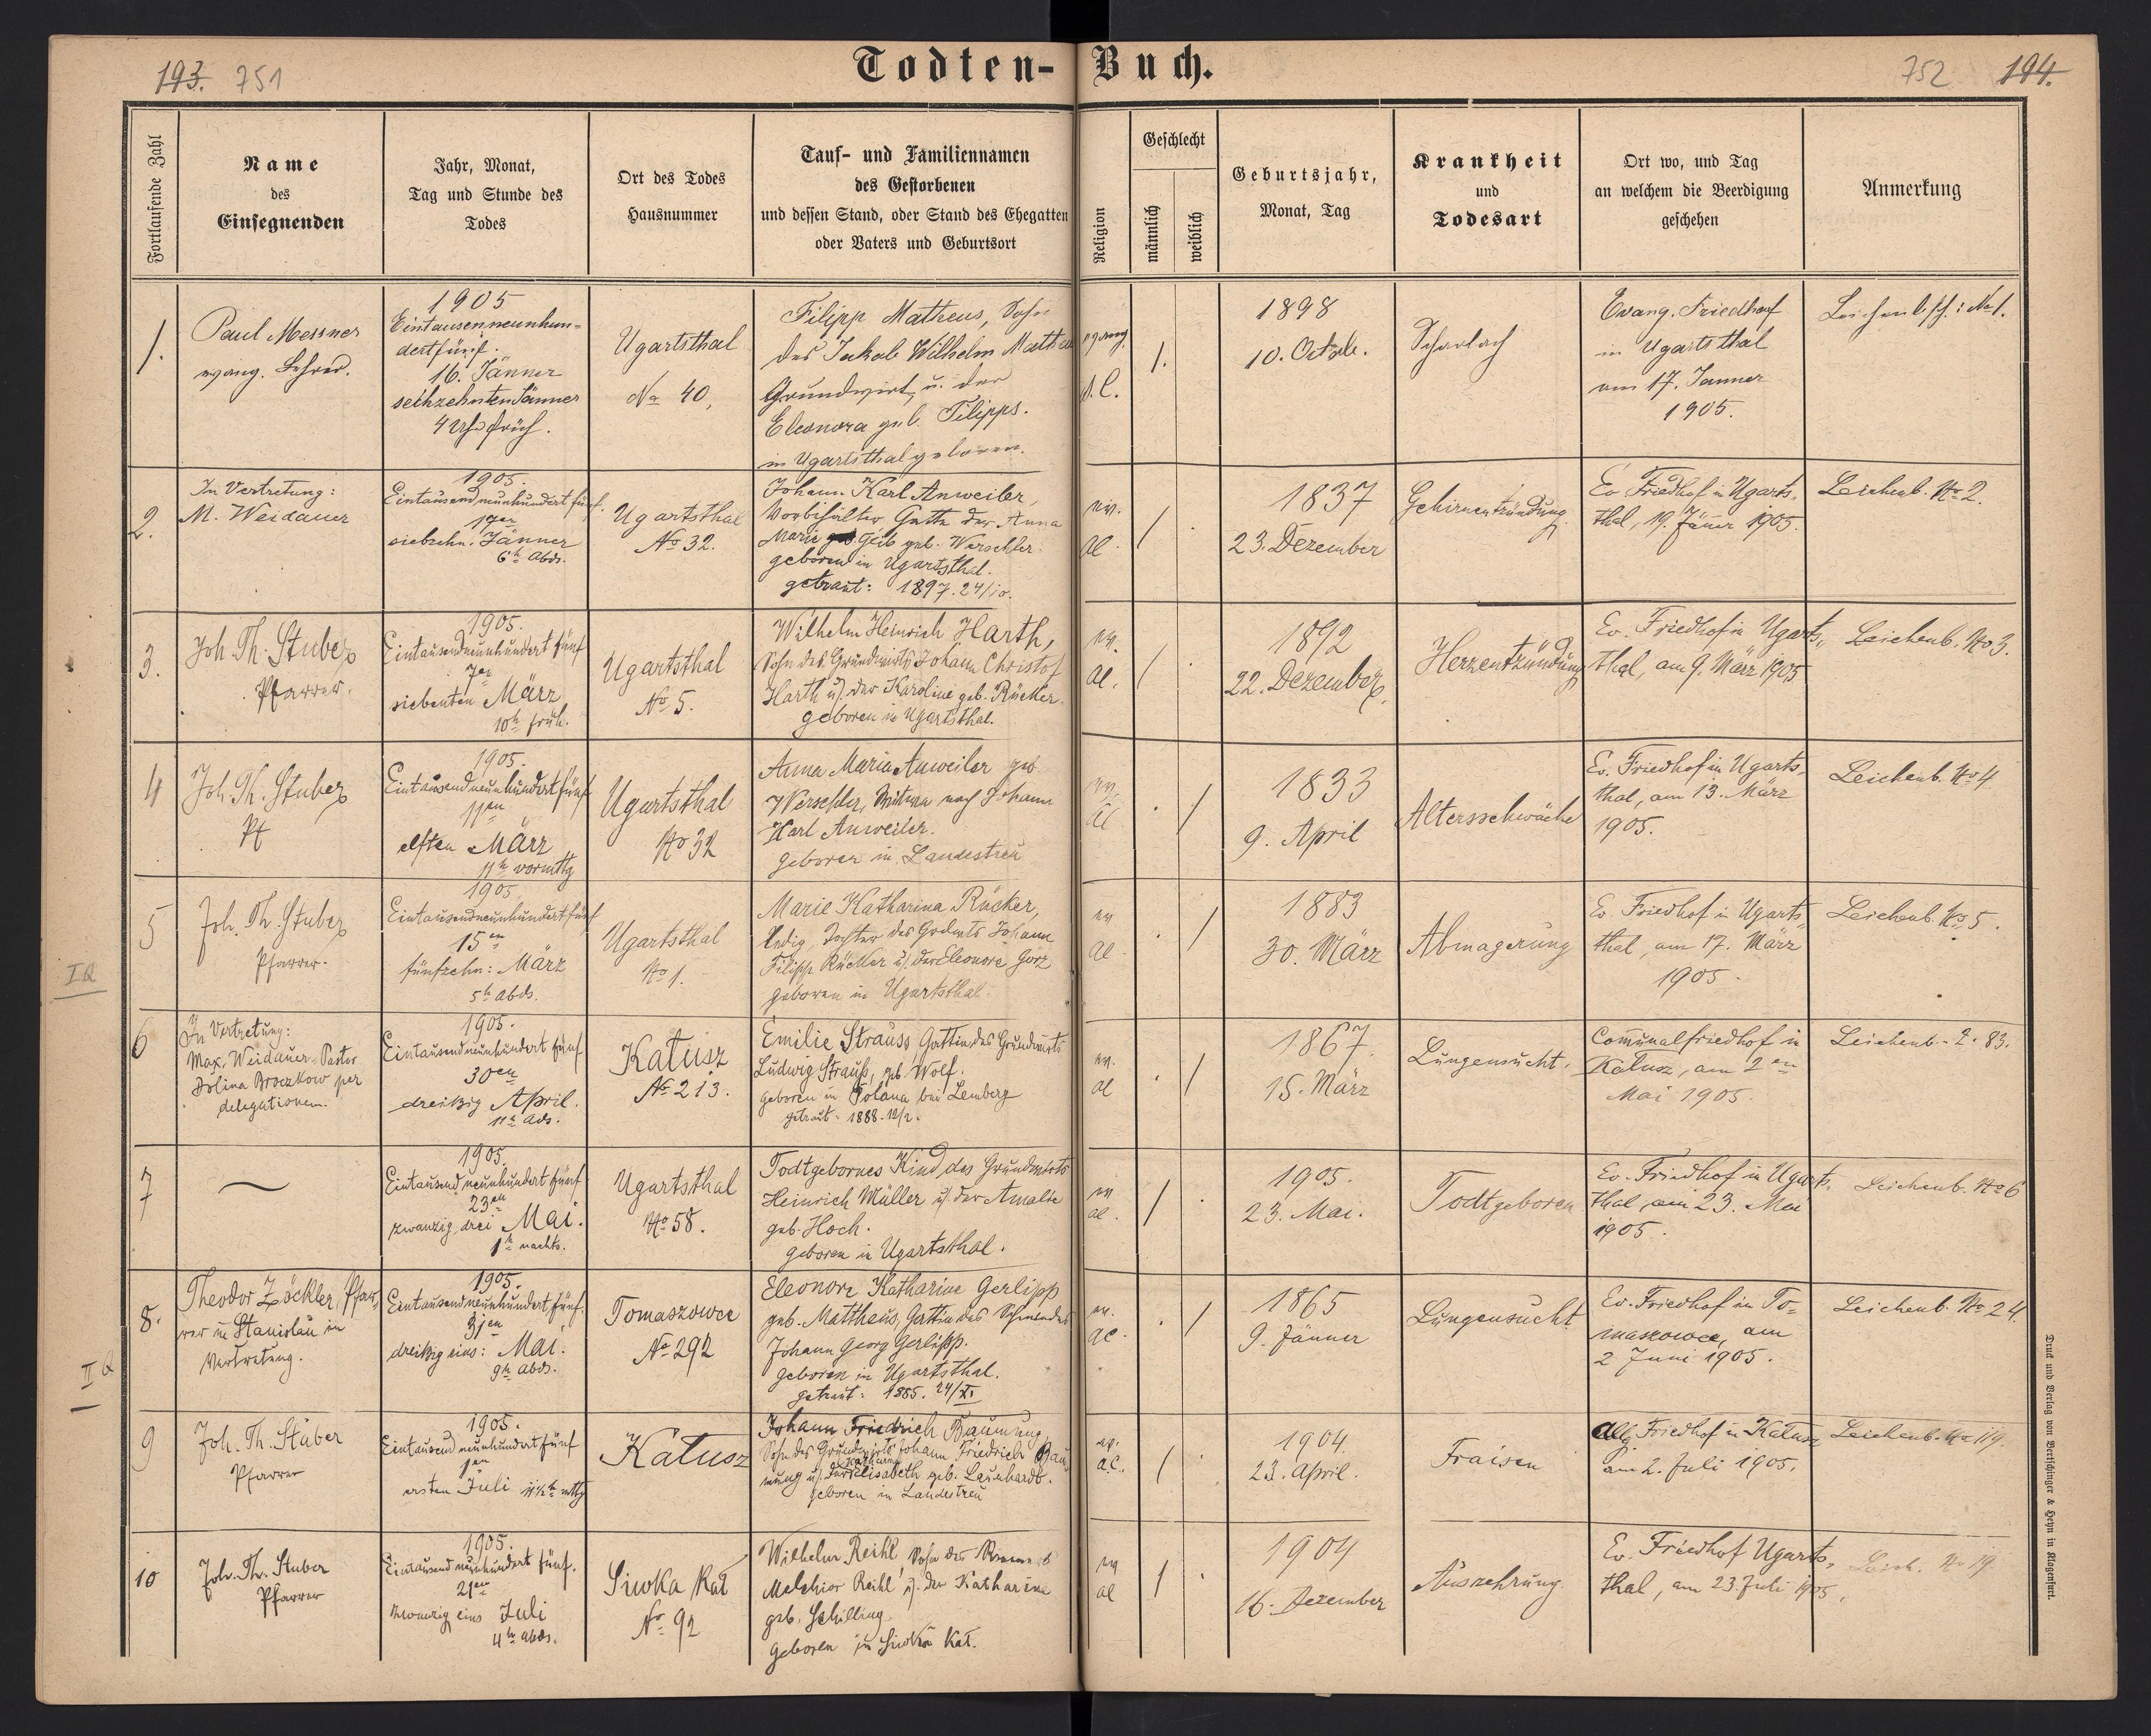 193. 751
Todten-Buch.
752 194.
Fortlaufende Zahl
Name
des
Einsegnenden
Jahr, Monat,
Tag und Stunde des
Todes
Ort des Todes
Hausnummer
Tauf- und Familiennamen
des Gestorbenen
und dessen Stand, oder Stand des Ehegatten
oder Vaters und Geburtsort
Religion
Geschlecht
männlich
weiblich
Geburtsjahr,
Monat, Tag
Krankheit
und
Todesart
Ort wo, und Tag
an welchem die Beerdigung
geschehen
Anmerkung
1.
Paul Messner
evang. Lehrer.
1905
Eintausenneunhun=
dertfünf.
16. Jänner
sechzehnten Jänner
4 Uhr früh.
Ugartsthal
No 40,
Filipp Matheus, Sohn
des Jakob Wilhelm
Grundwirt, u. der
Eleonora geb. Filipps.
in Ugartsthal geboren.
evang.
A.C.
1.
1898
10. Octob.
Scharlach
Evang. Friedhof
in Ugartsthal
am 17. Janner
1905.
No 1.
2.
In Vertretung:
M. Weidauer
1905.
Eintausendneunhundert fünf.
17en
siebzehn. Jänner
6h abds.
Ugartsthal
No 32.
Johann Karl Anweiler
Gatte der Anna
Marie geb. Werschler.
geboren in Ugartsthal.
getraut: 1897. 24/10.
ev.
ac
/ .
1837
23. Dezember
Gehirnentzündung
Ev Friedhof in Ugarts-
thal, 19. Jäner 1905.
Leichenb. No 2.
3.
Joh. Th. Stuber
Pfarrer.
1905.
Eintausendneunhundert fünf
7en
siebenten März
10h früh.
Ugartsthal
No 5.
Wilhelm Heinrich Harth,
Sohn des Grundwirts Johann Christof
Harth u. der Karoline geb. Rücker.
geboren in Ugartsthal.
ev.
ac.
/ .
1892
22. Dezember
Herzentzündung
Ev. Friedhof in Ugarts-
thal, am 9. März 1905
Leichenb. No 3.
4
Joh. Th. Stuber
Pf
1905.
Eintausendneunhundertfünf
11en
elften März
11h vormttg
Ugartsthal
No 32
Anna Maria Anweiler geb.
Werschler, Witwe nach Johann
Karl Anweiler.
geboren in Landestreu
ev.
ac
. /
1833
9. April
Altersschwäche
Ev. Friedhof in Ugarts-
thal, am 13. März
1905.
Leichenb. No 4
5
Joh. Th. Stuber
Pfarrer.
1905
Eintausendneunhundertfünf
15en
fünfzehn: März
5h abds.
Ugartsthal
No 1.
Marie Katharina Rücker,
ledig, Tochter des Grdwts Johann
Filipp Rücker u. der Eleonore Gorz
geboren in Ugartsthal.
ev
ac.
. /
1883
30. März
Abmagerung
Ev. Friedhof in Ugarts-
thal, am 17. März
1905.
Leichenb. No 5.
IQ
6
In Vertretung:
Max. Weidauer, Pastor
Dolina Broczkow per
delegationem.
1905.
Eintausendneunhundert fünf
30en
dreißig April.
11h abds.
Kałusz
No 213.
Emilie Strauss Gattin des Grundwirts
Ludwig Strauß, geb. Wolf.
geboren in Polana bei Lemberg
getraut. 1888. 12/2.
ev.
ac
. /
1867.
15. März
Lungensucht.
Comunalfriedhof in
Kalusz, am 2en
Mai 1905.
Leichenb. Z. 83.
7
1905.
Eintausend neunhundert fünf
23en
zwanzig drei Mai.
1h nachts.
Ugartsthal
No 58.
Todtgebornes Kind des Grundwirts
Heinrich Müller u. der Amalie
geb. Hoch.
geboren in Ugartsthal.
ev
ac.
/ .
1905.
23. Mai.
Todtgeboren
Ev. Friedhof in Ugarts-
thal, am 23. Mai
1905.
Leichenb. No 6
8.
Theodor Zöckler, Pfar-
rer in Stanislau in
Vertretung.
1905.
Eintausendneunhundert fünf.
31en
dreißig eins: Mai.
9h abds.
Tomaszowce
No 292
Eleonore Katharine Gerlipp
geb. Mattheus, Gattin des Schmiedes
Johann Georg Gerlipp.
geboren in Ugartsthal.
getraut: 1885. 24/XI
ev.
ac.
. /
1865
9. Jänner
Lungensucht
Ev. Friedhof in To-
maszowce, am
2 Juni 1905.
Leichenb. No 24.
II Q
9
Joh. Th. Stuber
Pfarrer
1905.
Eintausend neunhundert fünf
1en
ersten Juli 11½h mttg
Kałusz
Johann Friedrich Baumung,
Sohn des Grundwirts Johann Friedrich Bau-
mung u. der Katharina Elisabeth geb. Leinhardt.
geboren in Landestreu
ev.
a.c.
/ .
1904.
23. April.
Fraisen
Allg. Friedhof in Kalusz
am 2. Juli 1905.
Leichenb. No 119.
10
Joh. Th. Stuber
Pfarrer
1905.
Eintausend neunhundert fünf.
21en
zwanzig eins Juli
4h abds.
Siwka Kał
No 92
Wilhelm Reihl, Sohn des
Melchior Reihl u. der Katharina
geb. Schilling
geboren in Siwka Kał.
ev
ac
/ .
1904
16. Dezember
Auszehrung.
Ev. Friedhof Ugarts-
thal, am 23. Juli 1905.
Leich. No 19
Druck und Verlag von Bertschinger & Heyn in Klagenfurt.